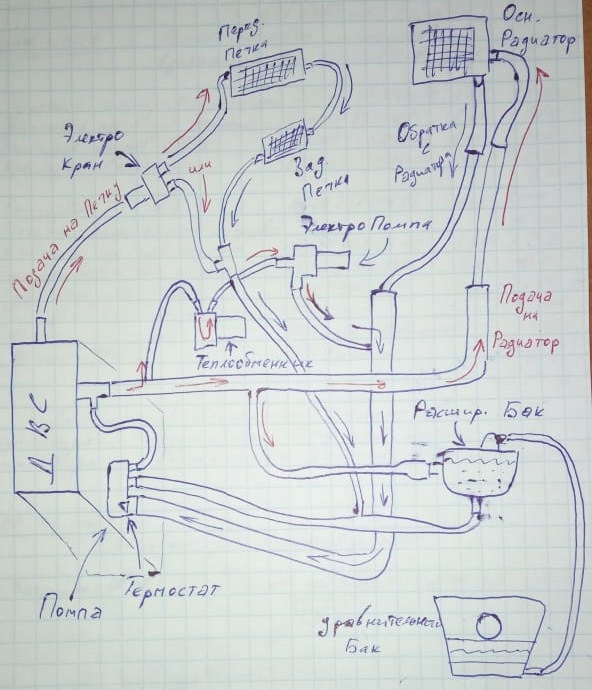 Перед.
Печка
Осн.
Радиатор
Электро
Кран
или
Зад.
Печка
Обратка
с
Радиатора
Подача на Печку
Электро Помпа
Подача
на
Радиатор
Теплообменник
ДВС
Расшир. Бак
Термостат
Помпа
Уравнительный
Бак